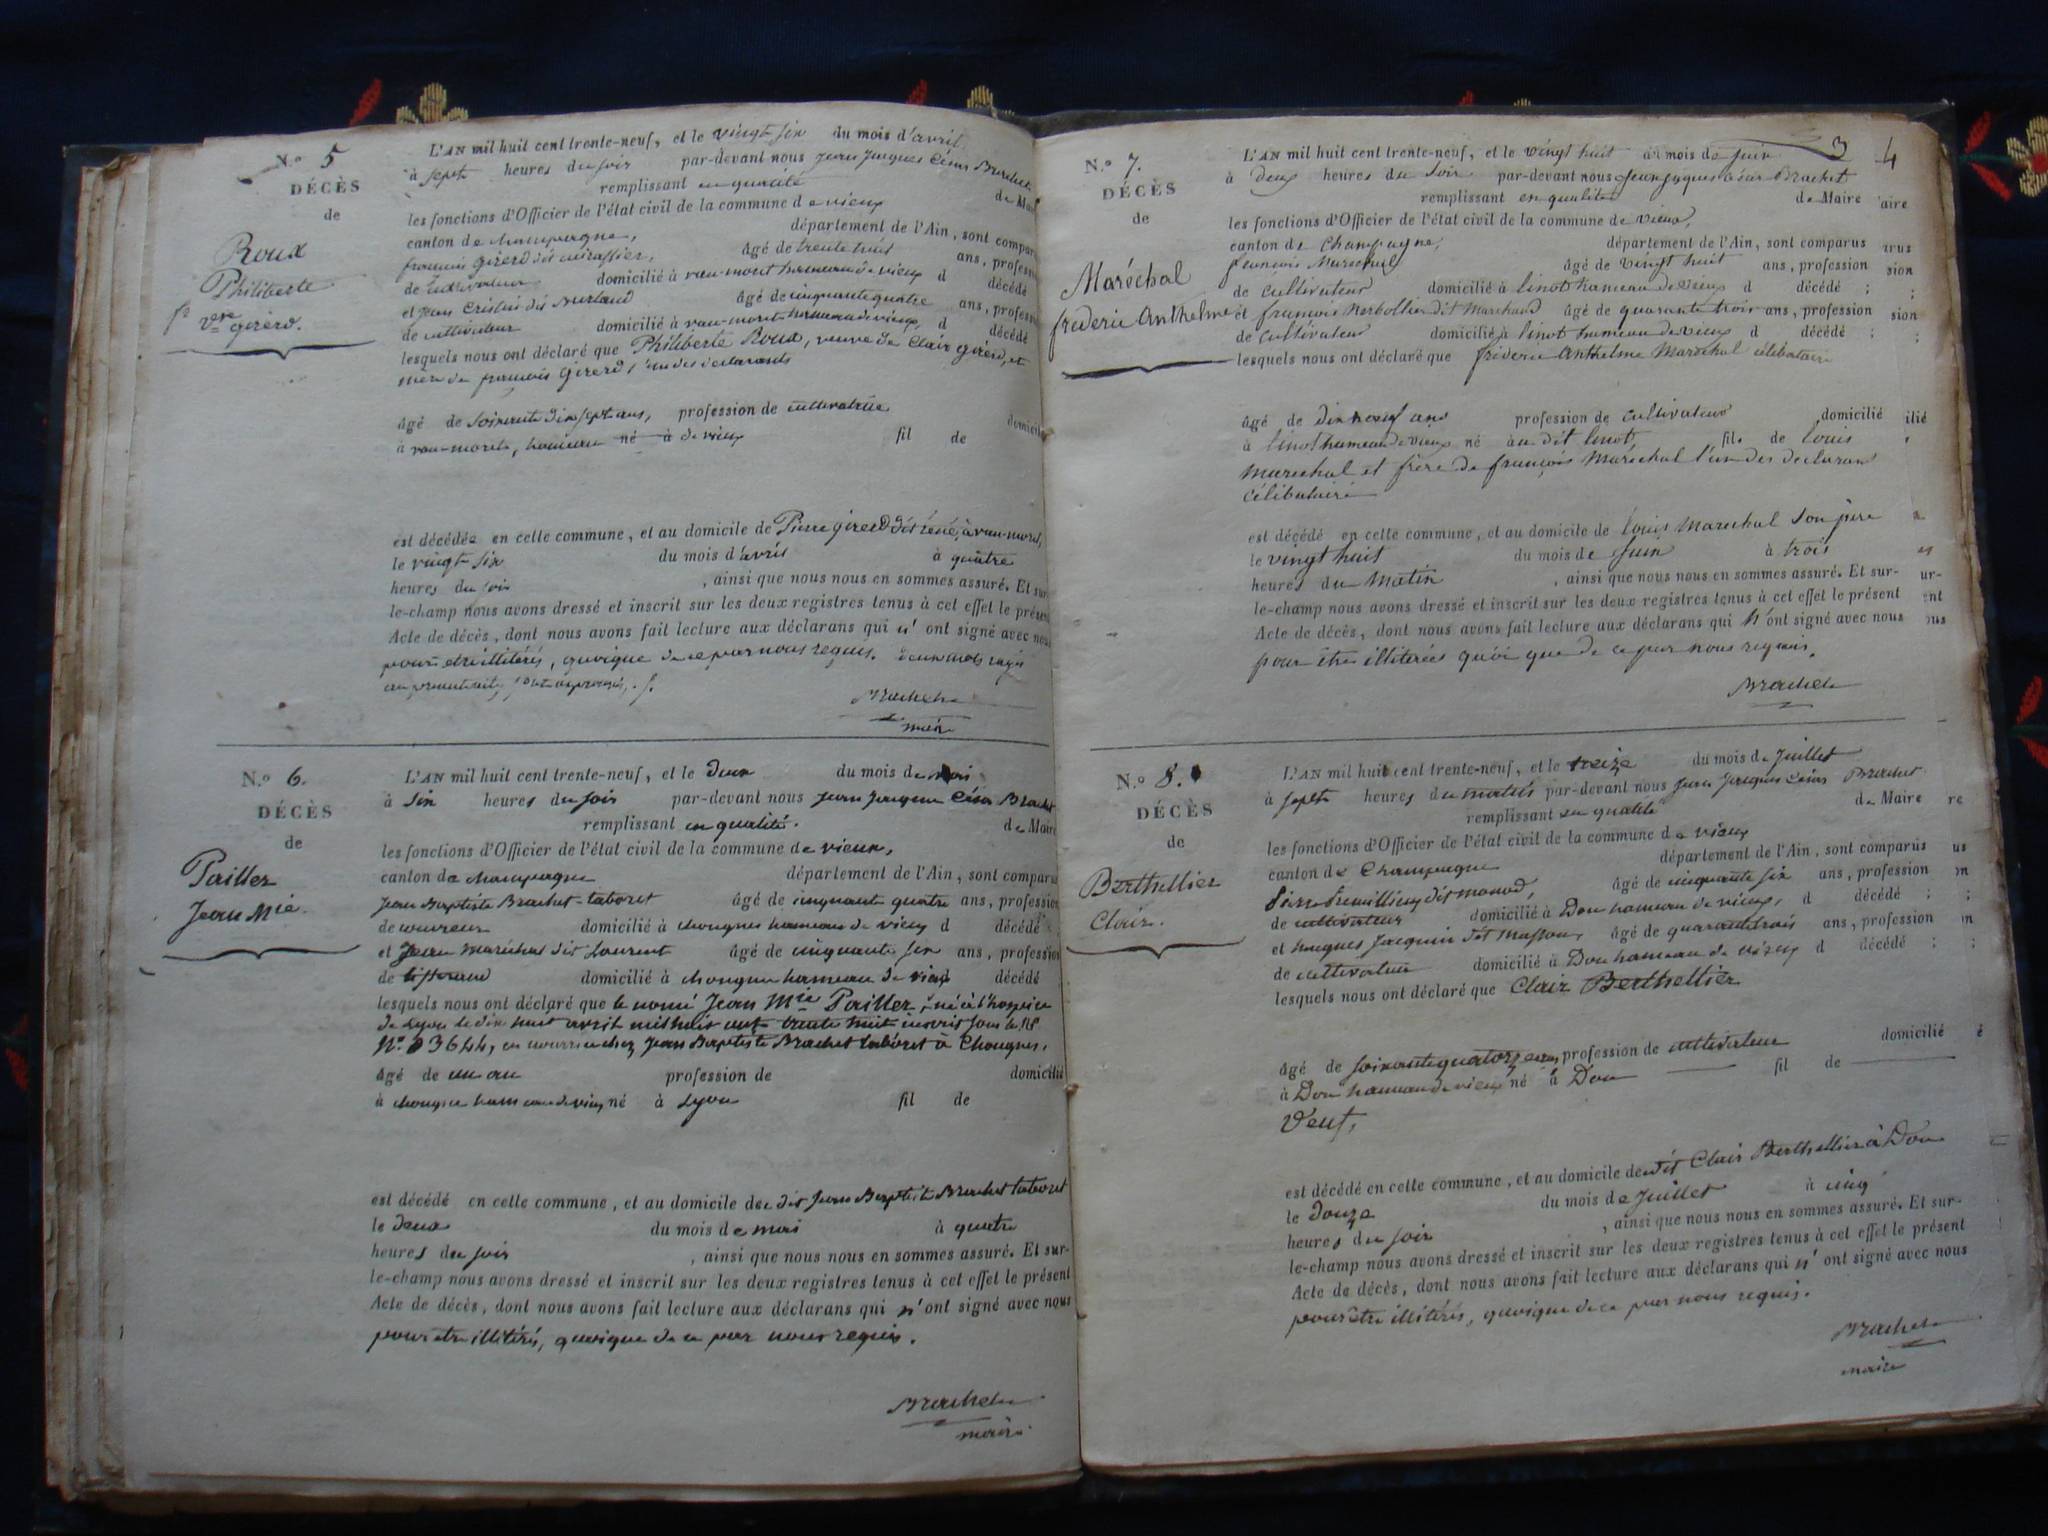 N.o 5
DÉCÈS
de
Roux
Philiberte
Vve girerd.
L'AN mil huit cent trente-neuf, et le vingt six du mois d'avril
à sept heures du soir par-devant nous Jean Jacques César Brachet
remplissant en qualité de Maire
les fonctions d'Officier de l'état civil de la commune de vieux
canton de Champagne, département de l'Ain, sont comparus
françois girerd dit âgé de trente huit ans, profession
de cultivateur domicilié à vau-moret hameau de vieux d décédé
et jean dit âgé de cinquante quatre ans, profession
de cultivateur domicilié à vau-moret hameau de vieux, d décédé
lesquels nous ont déclaré que Philiberte Roux, veuve de Clair girerd, et
mère de françois girerd l'un des déclarants
âgé de soixante dix sept ans, profession de cultivatrice domicilié
à vau-moret, hameau né à de vieux fil de
est décédée en cette commune, et au domicile de Pierre girerd dit à vau-moret,
le vingt six du mois d'avril à quatre
heures du soir , ainsi que nous nous en sommes assuré. Et sur-
le-champ nous avons dressé et inscrit sur les deux registres tenus à cet effet le présent
Acte de décès, dont nous avons fait lecture aux déclarans qui n'ont signé avec nous
pour etre illitérés, quoique de ce par nous requis. deux mots rayés
Brachet
maire
N.o 6.
DÉCÈS
de
Paillez
Jean Mie
L'AN mil huit cent trente-neuf, et le deux du mois de mai
à six heures du soir par-devant nous Jean Jacques César Brachet
remplissant en qualité. de Maire
les fonctions d'Officier de l'état civil de la commune de vieux,
canton de Champagne département de l'Ain, sont comparus
Jean Baptiste Brachet-taboret âgé de cinquante quatre ans, profession
de domicilié à chongnes hameau de vieux d décédé
et Jean Maréchal dit Laurent âgé de cinquante six ans, profession
de tisserand domicilié à chongnes hameau de vieux décédé
lesquels nous ont déclaré que le nomé Jean Mie Paillez, né à l'hospice
de Lyon le dix huit avril mil huit cent trente huit inscrit sous le
No. 3644, en nourrice chez Jean Baptiste Brachet taboret à Chongnes.
âgé de un an profession de domicilié
à chongnes hameau de vieux né à Lyon fil de
est décédé en cette commune, et au domicile de dit Jean Baptiste Brachet taboret
le deux du mois de mai à quatre
heures du soir , ainsi que nous nous en sommes assuré. Et sur-
le-champ nous avons dressé et inscrit sur les deux registres tenus à cet effet le présent
Acte de décès, dont nous avons fait lecture aux déclarans qui n'ont signé avec nous
pour etre illitérés, quoique de ce par nous requis.
Brachet
maire
3 4
N.o 7.
DÉCÈS
de
Maréchal
fréderic Anthelme
L'AN mil huit cent trente-neuf, et le vingt huit du mois de juin
à deux heures du soir par-devant nous Jean jaques César Brachet
remplissant en qualité de Maire
les fonctions d'Officier de l'état civil de la commune de vieux,
canton de Champagne, département de l'Ain, sont comparus
françois Marechal âgé de vingt huit ans, profession
de cultivateur domicilié à linot hameau de vieux d décédé ;
et françois dit Marchand âgé de quarante trois ans, profession
de cultivateur domicilié à linot hameau de vieux d décédé ;
lesquels nous ont déclaré que fréderic Anthelme Maréchal célibataire
âgé de dix neuf ans profession de cultivateur domicilié
à linot hameau de vieux né au dit linot, fils de louis
Marechal et frère de françois Maréchal l'un des declarans
célibataire
est décédé en cette commune, et au domicile de louis Marechal son père
le vingt huit du mois de juin à trois
heures du Matin , ainsi que nous nous en sommes assuré. Et sur-
le-champ nous avons dressé et inscrit sur les deux registres tenus à cet effet le présent
Acte de décès, dont nous avons fait lecture aux déclarans qui n'ont signé avec nous
pour être illiterées quoi que de ce par nous requis.
Brachet
N.o 8.
DÉCÈS
de
Berthellier
Clair.
L'AN mil huit cent trente-neuf, et le treize du mois de Juillet
à sept heures du matin par-devant nous Jean Jacques César Brachet
remplissant en qualité de Maire
les fonctions d'Officier de l'état civil de la commune de vieux
canton de Champagne département de l'Ain, sont comparus
dit monod, âgé de cinquante six ans, profession
de cultivateur domicilié à Don hameau de vieux, d décédé ;
et hugues Jacquin dit Masson, âgé de quarante trois ans, profession
de cultivateur domicilié à Don hameau de vieux d décédé ;
lesquels nous ont déclaré que Clair Berthellier
âgé de soixante quatorze ans, profession de cultivateur domicilié
à Don hameau de vieux né à Don fil de
Veuf,
est décédé en cette commune, et au domicile de dit Clair Berthellier à Don
le douze du mois de Juillet à cinq
heures du soir , ainsi que nous nous en sommes assuré. Et sur-
le-champ nous avons dressé et inscrit sur les deux registres tenus à cet effet le présent
Acte de décès, dont nous avons fait lecture aux déclarans qui n'ont signé avec nous
pour être illitérés, quoique de ce par nous requis.
Brachet
maire